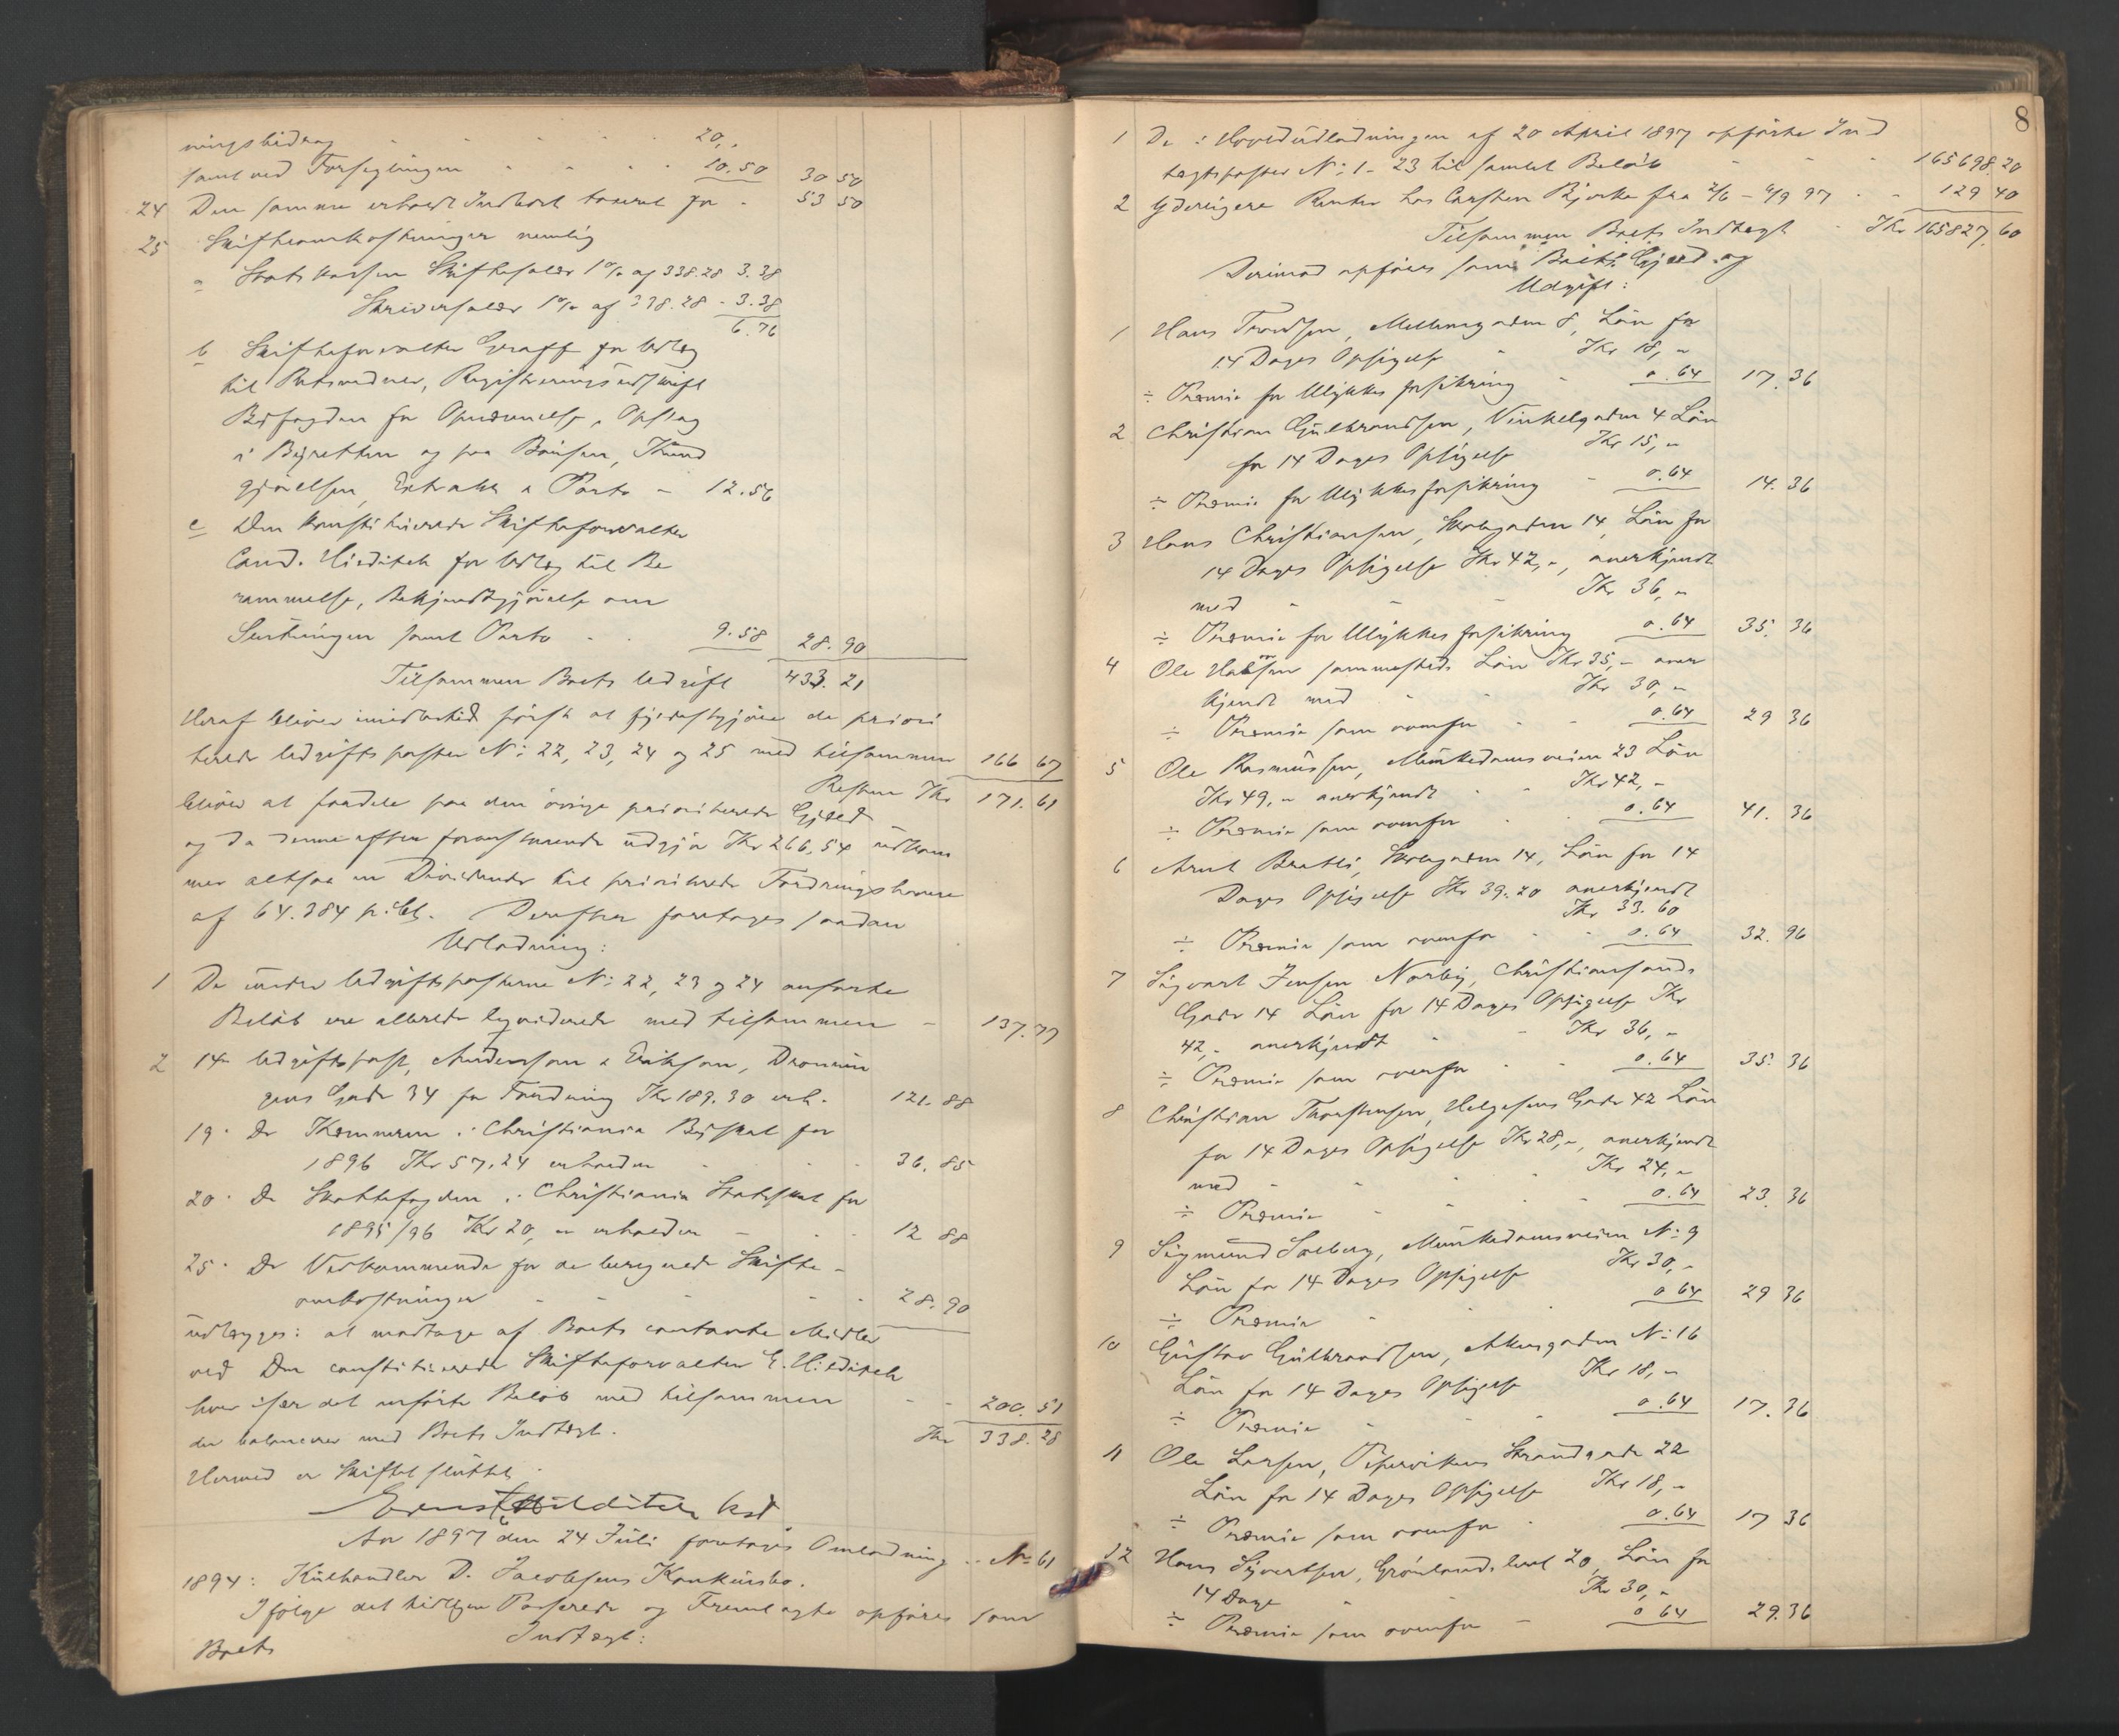 ningsbidrag - - - - - 20,-
samt ved Forseglingen - - - - 10.50 30 50
24 Den samme erholdt Indbort taxeret for - 53 50
25 Skifteomkostninger nemlig
a Statskassen Skiftesalær 1% af 338.28 3.38
Skriversalær 1% af 338.28 - 3.38
6.76
b Skifteforvalter Graff for Udlæg
til Retsvidner, Registreringsudskrift
Byfogden for Opnævnelse, Opslag
i Byretten og paa Börsen, Kund
gjörelsen, Extrakt & Porto - 12.56
c Den konstituerede Skifteforvalter
Cand. Hilditch for Udlæg til Be
rammelse, Bekjendtgjörelse om
Slutningen samt Porto - - 9.58 28.90
Tilsammen Boets Udgift 433.21
Heraf bliver imidlertid först at fyldestgjöre de priori
terede Udgiftsposter N: 22, 23, 24 og 25 med tilsammen 166 67
Resten Kr 171.61
bliver at fordele paa den övrige prioriterede Gjæld
og da denne efter foranstaaende udgjör Kr 266,54 udkom
mer altsaa en Dividende til prioriterede Fordringshavere
af 64.384 p:Ct. Derefter foretages saadan
Udlodning:
1 De under Udgiftsposterne N: 22, 23 og 24 anförte
Belöb ere allerede liqviderede med tilsammen - 137.77
2 14 Udgiftspost, Andersson & Erikson, Dronnin
gens Gade 34 for Fordring Kr 189.30 erh. 121.88
19 · Do Kæmneren i Christiania Byskat for
1896 Kr 57.24 erholder - - - 36.85
20 · Do Skattefogden i Christiania Statsskat for
1895/96 Kr 20,- erholder - - - 12 88
25 · Do Vedkommende for de beregnede Skifte-
omkostninger - - - - - 28.90
udlægges: at modtage af Boets contante Midler
ved Den constituerede Skifteforvalter E. Hilditch
hver især det anförte Belöb med tilsammen - - 200.51
der balancerer med Boets Indtægt. Kr 338.28
Hermed er Skiftet sluttet.
Ernst Hilditch kst
Aar 1897 den 24 Juli foretages Omlodning i N: 61
1894: Kulhandler D. Jacobsens Konkursbo.
Ifölge det tidligere Passerede og Fremlagte opföres som
Boets Indtægt:
8
1 De i Hovedudlodningen af 20 April 1897 opförte Ind
tægtsposter N: 1 - 23 til samlet Belöb - - - 165698.20
2 Yderligere Renter hos Carsten Bjerke fra 2/6 - 4/9 97 - - 129 40
Tilsammen Boets Indtægt - Kr 165827.60
Derimod opföres som Boets Gjæld og
Udgift:
1 Hans Trondsen, Mellemgaden 8, Lön for
14 Dages Opsigelse - Kr 18,-
÷ Præmie for Ulykkesforsikring - 0.64 17.36
2 Christian Gulbrandsen, Vinkelgaden 4 Lön
for 14 Dages Opsigelse Kr 15,-
÷ Præmie for Ulykkesforsikring - 0.64 14.36
3 Hans Christiansen, Skolegaden 14, Lön for
14 Dages Opsigelse Kr 42,-, anerkjendt
med - - - Kr 36,-
÷ Præmie for Ulykkesforsikring 0.64 35.36
4 Ole sammesteds Lön Kr 35,- aner
kjendt med - - Kr 30,-
÷ Præmie som ovenfor - - 0.64 29 36
5 Ole Rasmussen, Munkedamsveien 23 Lön
Kr 49,- anerkjendt - - Kr 42,-
÷ Præmie som ovenfor - - 0.64 41.36
6 Arnt Bratli, Skolegaden 14, Lön for 14
Dages Opsigelse Kr 39.20 anerkjendt
Kr 33.60
÷ Præmie som ovenfor - - 0.64 32.96
7 Sigvart Jensen Norby, Christiansands
Gade 14 Lön for 14 Dages Opsigelse Kr
42,- anerkjendt - - Kr 36,-
÷ Præmie som ovenfor - - 0.64 35.36
8 Christian Thorstensen, Helgesens Gade 42 Lön
for 14 Dages Opsigelse Kr 28,-, anerkjendt
med - - - Kr 24,-
÷ Præmie - - - 0.64 23.36
9 Sigmund Solberg, Munkedamsveien N: 9
Lön for 14 Dages Opsigelse Kr 30,-
÷ Præmie - - 0 64 29 36
10 Gustav Gulbrandsen, Akersgaden N: 16
Lön for 14 Dages Opsigelse Kr 18,-
÷ Præmie - - 0.64 17.36
11 Ole Larsen, Pipervikens Strandgade 22
Lön for 14 Dages Opsigelse Kr 18,-
÷ Præmie som ovenfor - 0.64 17 36
12 Hans Syvertsen, Grönlandsleret 20, Lön for
14 Dage - - Kr 30,-
÷ Præmie som ovenfor - 0 64 29.36